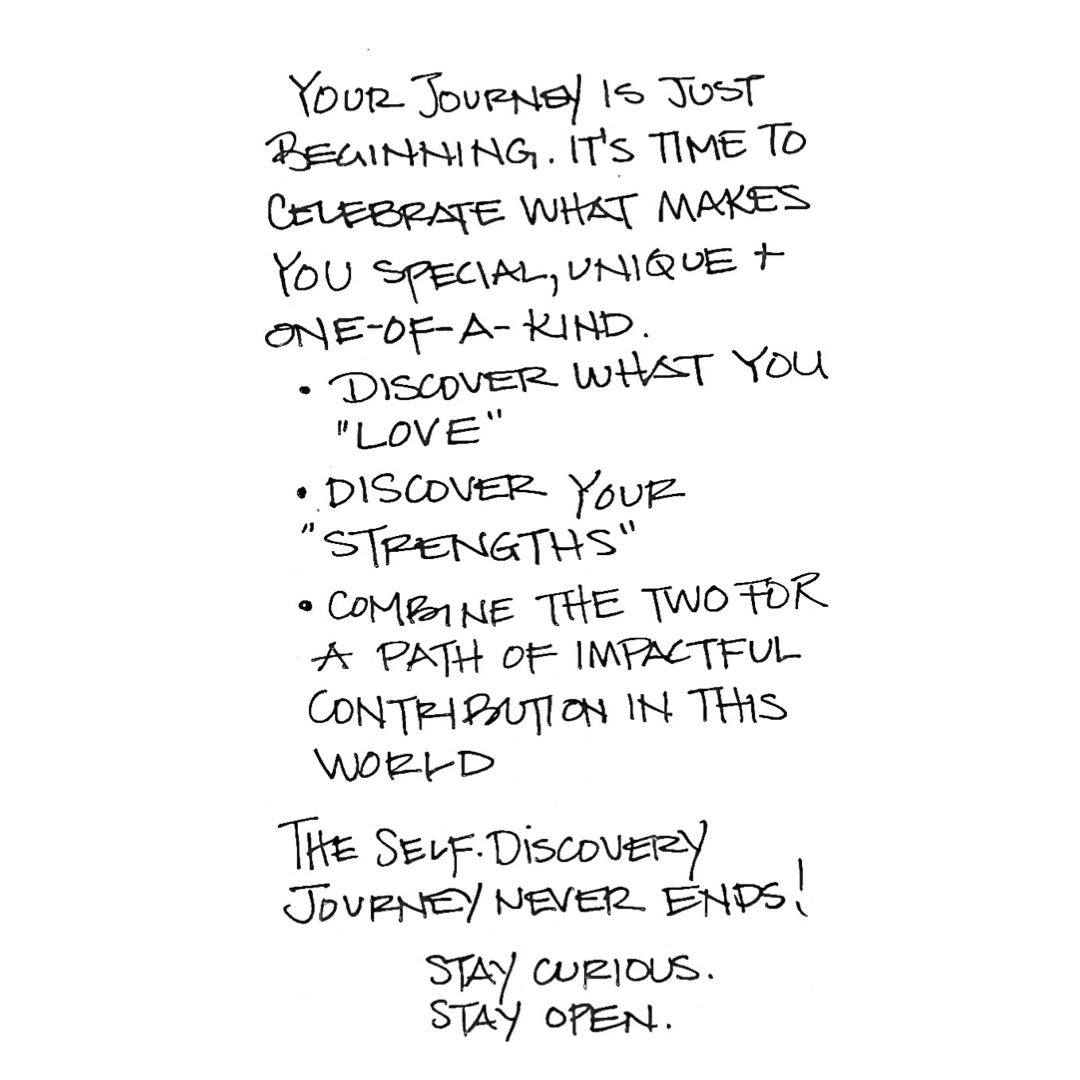 YOUR JOURNEY IS JUST
BEGINNING. IT'S TIME TO
CELEBRATE WHAT MAKES
YOU SPECIAL, UNIQUE +
ONE-OF-A-KIND.
• DISCOVER WHAT YOU
"LOVE"
• DISCOVER YOUR
"STRENGTHS"
• COMBINE THE TWO FOR
A PATH OF IMPACTFUL
CONTRIBUTION IN THIS
WORLD
THE SELF-DISCOVERY
JOURNEY NEVER ENDS!
STAY CURIOUS.
STAY OPEN.